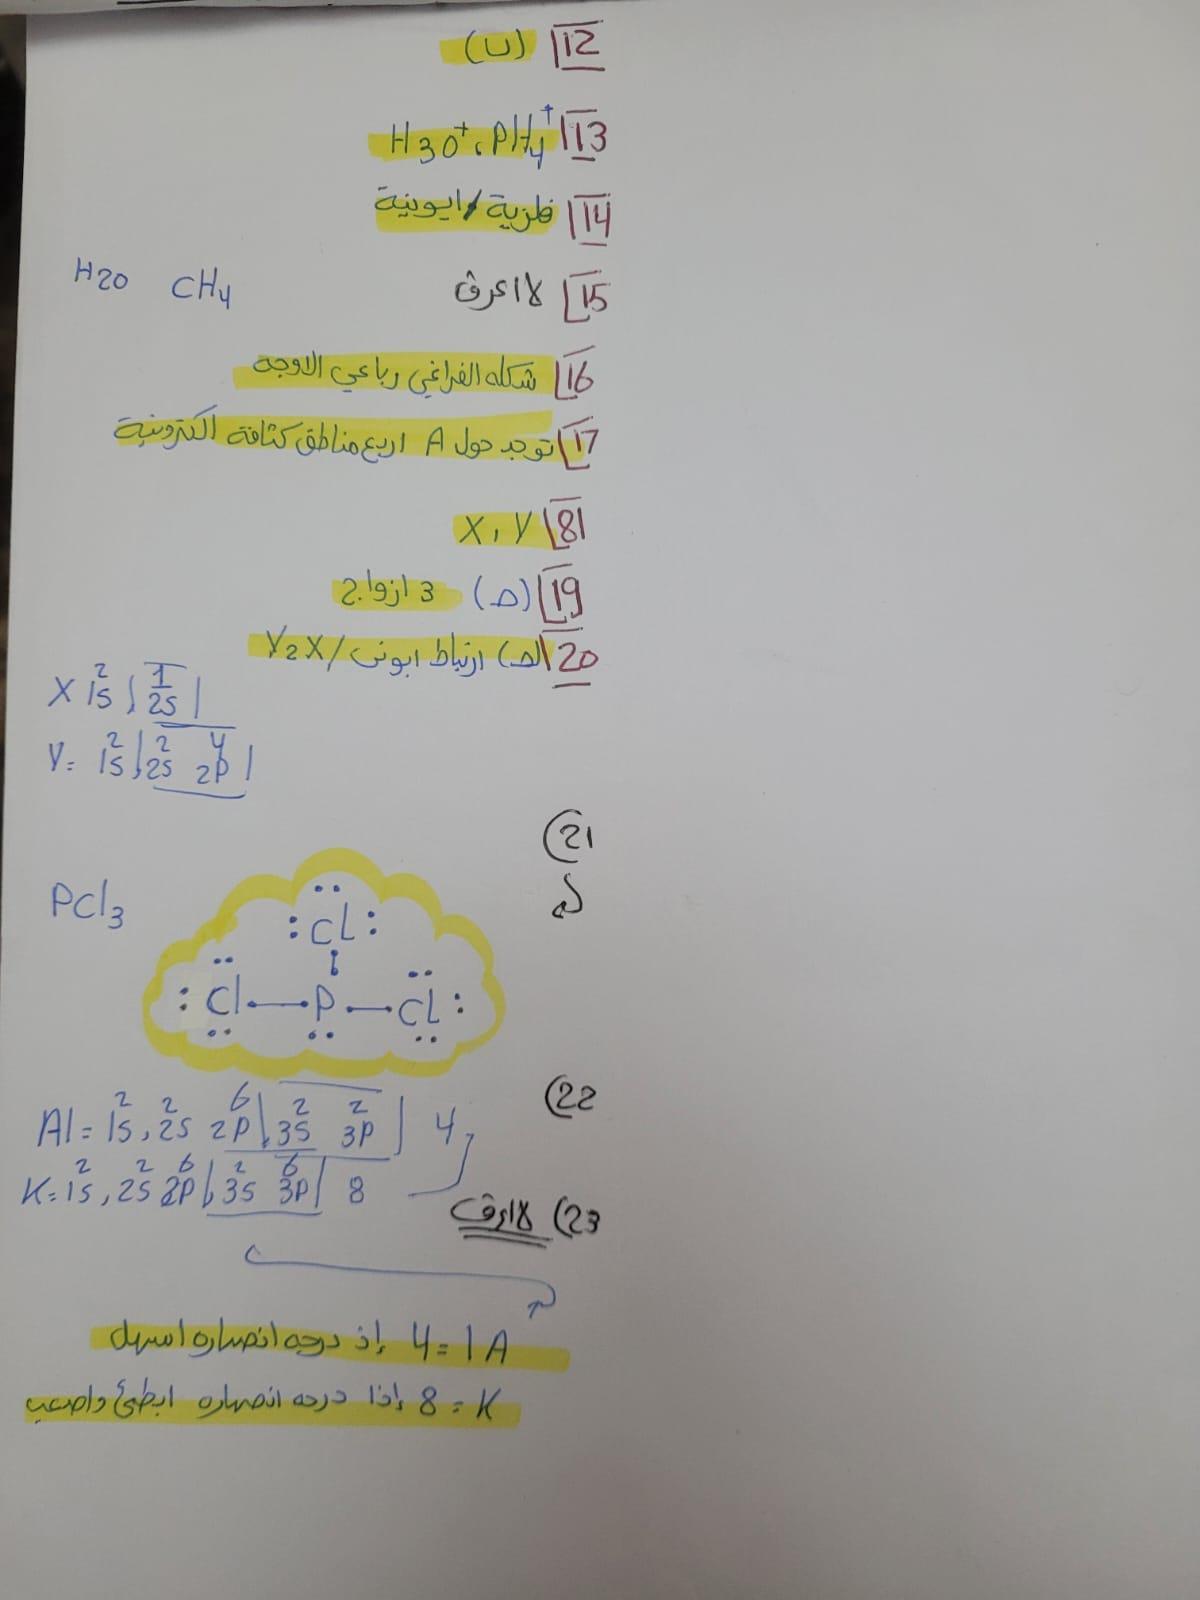 12 (ب)
13 H3O+ ، PH4+
14 فلزية / ايونية
15 لا اعرف CH4 H2O
16 شكله الفراغي رباعي الاوجه
17 توجد حول A اربع مناطق كثافة الكترونية
18 X , Y
19 (د) 3 ازواج
20 ارتباط ايوني / Y2X
X 1s2 , 2s1
Y= 1s2 , 2s2 2p4
21)
PCl3
Cl
Cl — P — Cl
22)
Al = 1s2 , 2s2 2p6 , 3s2 3p2 4
K = 1s2 , 2s2 2p6 , 3s2 3p6 8
23) لا اعرف
Al = 4 إذ درجه انصهاره اسهل
K = 8 إذا درجه انصهاره ابطئ واصعب